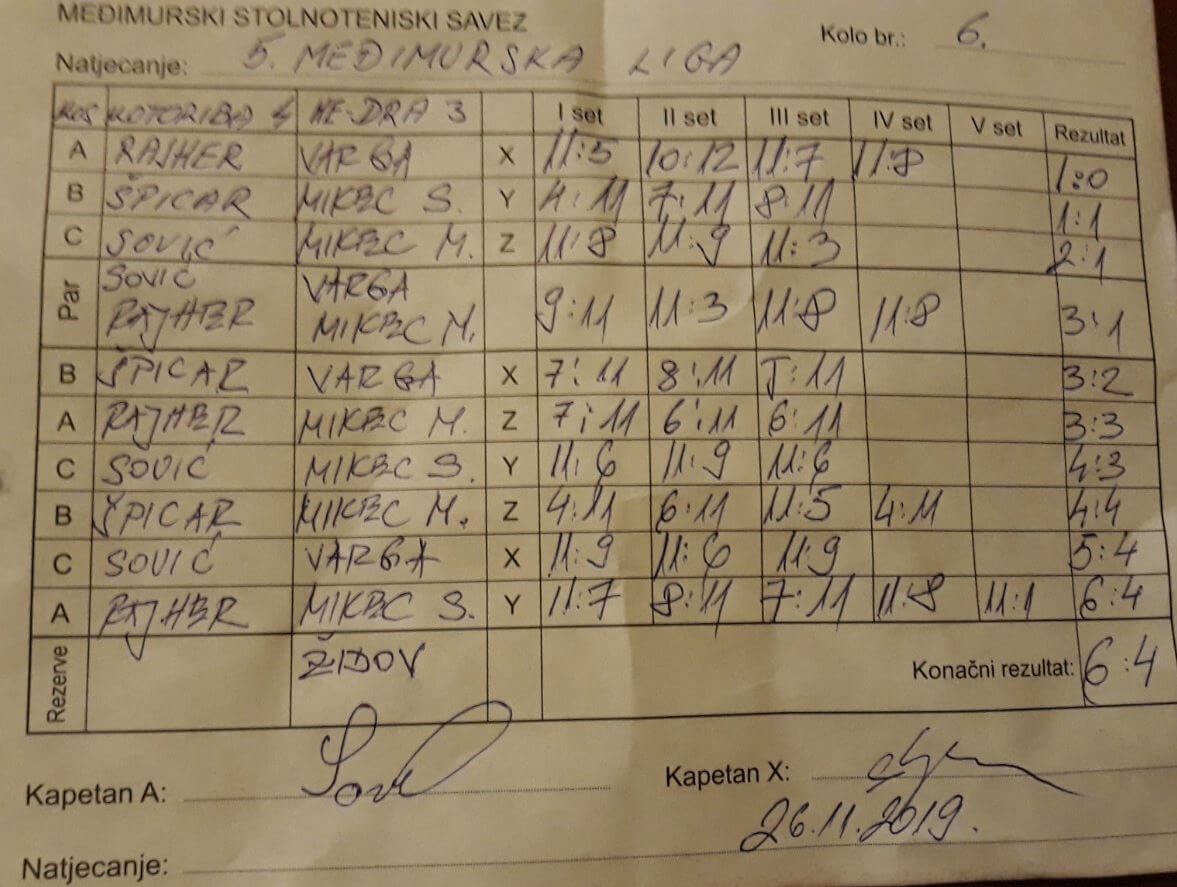 MEĐIMURSKI STOLNOTENISKI SAVEZ
Kolo br.: 6.
Natjecanje: 5. MEĐIMURSKA LIGA
KOTORIBA 4 ME-DRA 3 I set II set III set IV set V set Rezultat
A RAJHER VARGA X 11:5 10:12 11:7 11:8 1:0
B ŠPICAR MIKEC S. Y 4:11 7:11 8:11 1:1
C SOVIĆ MIKEC M. Z 11:8 11:9 11:3 2:1
Par SOVIĆ RAJHER VARGA MIKEC M. 9:11 11:3 11:8 11:8 3:1
B ŠPICAR VARGA X 7:11 8:11 5:11 3:2
A RAJHER MIKEC M. Z 7:11 6:11 6:11 3:3
C SOVIĆ MIKEC S. Y 11:6 11:9 11:6 4:3
B ŠPICAR MIKEC M. Z 4:11 6:11 11:5 4:11 4:4
C SOVIĆ VARGA X 11:9 11:6 11:9 5:4
A RAJHER MIKEC S. Y 11:7 8:11 7:11 11:8 11:1 6:4
Rezerve ŽIDOV Konačni rezultat: 6:4
Kapetan A: Kapetan X:
26.11.2019.
Natjecanje: